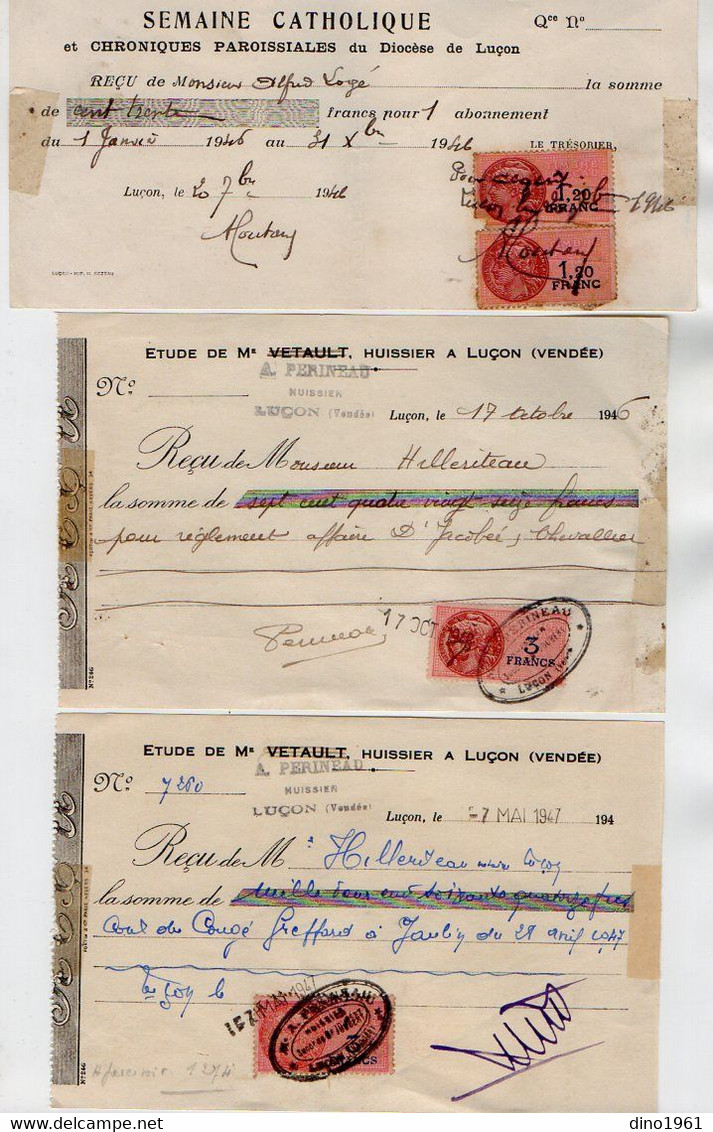 SEMAINE CATHOLIQUE Qce No
et CHRONIQUES PAROISSIALES du Diocèse de Luçon
REÇU de Monsieur Alfred Logé la somme
de cent trente francs pour 1 abonnement
du 1 Janvier 1946 au 31 Xbre 1946
LE TRÉSORIER,
Luçon, le 20 7bre 1946
Pour
1946
1,20
FRANC
1,20
FRANC
ETUDE DE Me VETAULT, HUISSIER A LUÇON (VENDÉE)
A. PERINEAU
HUISSIER
LUÇON (Vendée)
No
Luçon, le 17 octobre 1946
Reçu de Monsieur Hilleriteau
la somme de sept cent quatre vingt seize francs
pour réglement affaire D'Jacobée, Chevallier
17 OCT
3
FRANCS
PERINEAU
LUÇON
No 266
ETUDE DE Me VETAULT, HUISSIER A LUÇON (VENDÉE)
A. PERINEAU
HUISSIER
LUÇON (Vendée)
No 7260
Luçon, le -7 MAI 1947 194
Reçu de M Hilleriteau
la somme de mille
Cout du Congé Greffard à Jaulin du 28 avril 1947
-7 MAI 1947
A. PERINEAU
HUISSIER
LUÇON
No 266
1274
dino1961